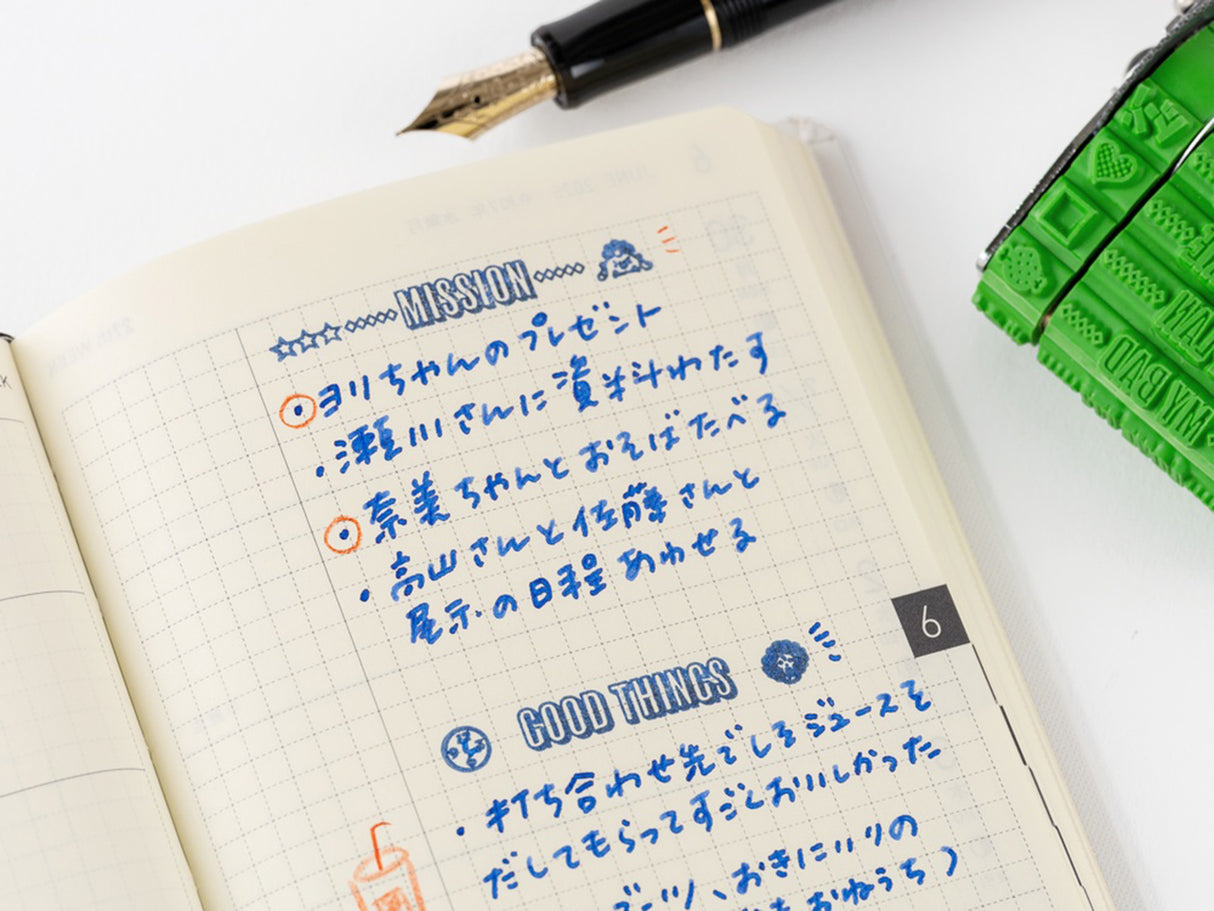 MISSION
・ヨリちゃんのプレゼント
・瀬川さんに資料わたす
・奈美ちゃんとおそばたべる
・高山さんと佐藤さんと
展示の日程あわせる
6
GOOD THINGS
・打ち合わせ先でジュースを
だしてもらってすごくおいしかった
おきにいりの
MY BAD